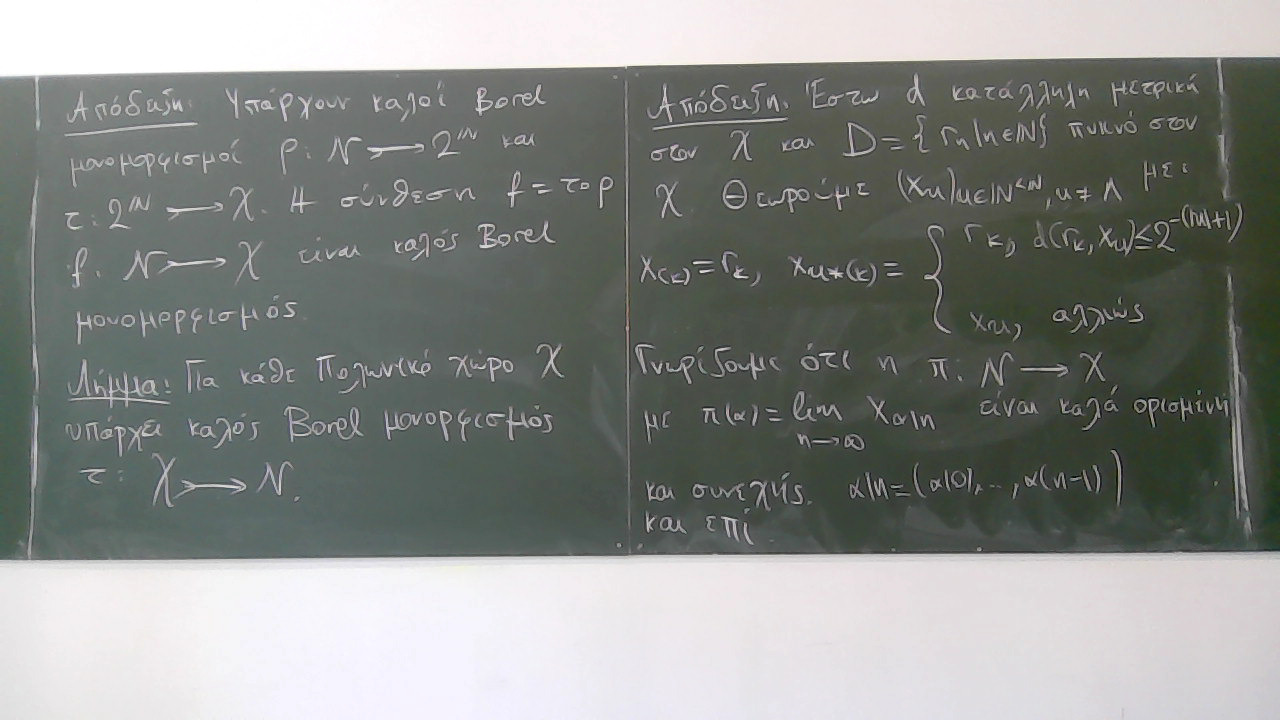 Απόδειξη: Υπάρχουν καλοί Borel
μονομορφισμοί ρ: 𝒩 ↣ 2^ℕ και
τ: 2^ℕ ↣ 𝒳. Η σύνθεση f = τ∘ρ
f: 𝒩 ↣ 𝒳 είναι καλός Borel
μονομορφισμός.
Λήμμα: Για κάθε Πολωνικό χώρο 𝒳
υπάρχει καλός Borel μονορφισμός
τ: 𝒳 ↣ 𝒩.
Απόδειξη. Έστω d κατάλληλη μετρική
στον 𝒳 και D = {r_n | n∈ℕ} πυκνό στον
𝒳 Θεωρούμε (x_u)_{u∈ℕ^{<ℕ}, u ≠ Λ} με:
x_{(k)} = r_k, x_{u*(k)} = { r_k, d(r_k, x_u) ≤ 2^{-(|u|+1)}
x_u, αλλιώς
Γνωρίζουμε ότι η π: 𝒩 → 𝒳
με π(α) = lim_{n→∞} x_{α|n} είναι καλά ορισμένη
και συνεχής. α|n = (α(0), .., α(n-1))
και επί.